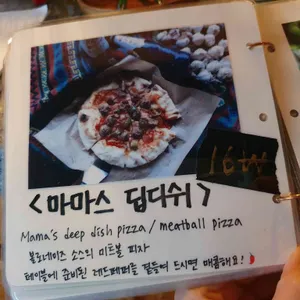 16₩
<마마스 딥디쉬>
Mama's deep dish pizza / meatball pizza
볼로네이즈 소스의 미트볼 피자
테이블에 준비된 레드페퍼를 곁들여 드시면 매콤해요!